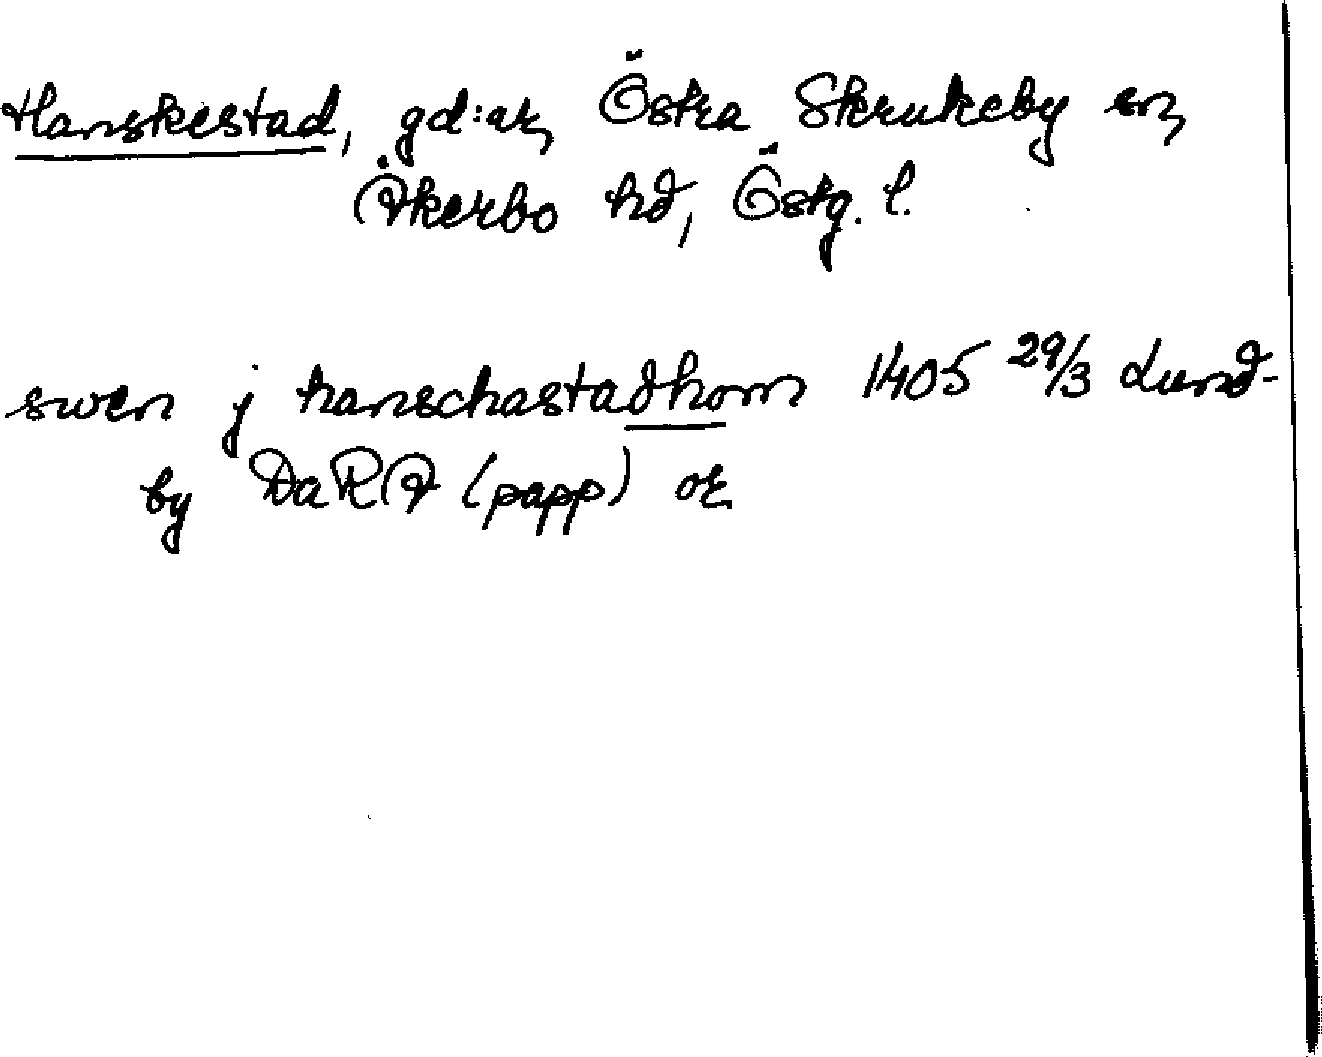 Hanskestad, gd:ar, Östra Skrukeby sn,
Åkerbo hd, Östg. l.
swen j hanschastadhom 1405 29/3 Lund-
by DaRA (papp) or